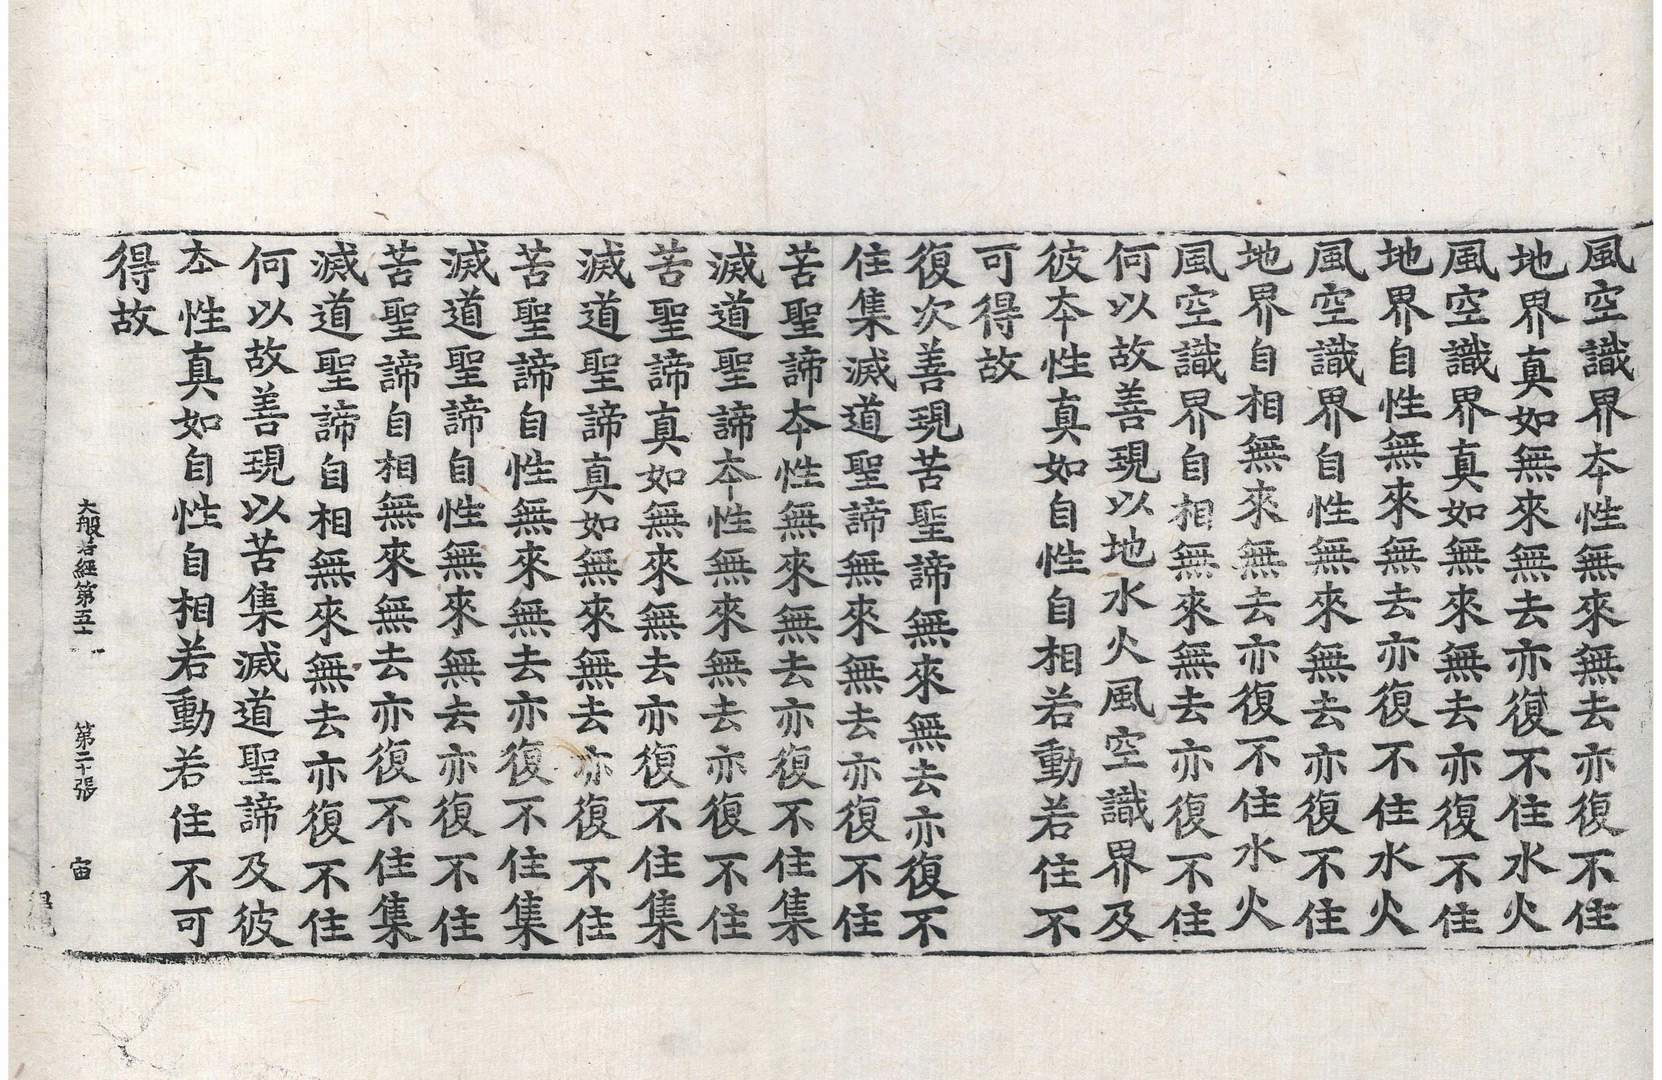 風空識界本性無來無去亦復不住
地界真如無來無去亦復不住水火
風空識界真如無來無去亦復不住
地界自性無來無去亦復不住水火
風空識界自性無來無去亦復不住
地界自相無來無去亦復不住水火
風空識界自相無來無去亦復不住
何以故善現以地水火風空識界及
彼本性真如自性自相若動若住不
可得故
復次善現苦聖諦無來無去亦復不
住集滅道聖諦無來無去亦復不住
苦聖諦本性無來無去亦復不住集
滅道聖諦本性無來無去亦復不住
苦聖諦真如無來無去亦復不住集
滅道聖諦真如無來無去亦復不住
苦聖諦自性無來無去亦復不住集
滅道聖諦自性無來無去亦復不住
苦聖諦自相無來無去亦復不住集
滅道聖諦自相無來無去亦復不住
何以故善現以苦集滅道聖諦及彼
本性真如自性自相若動若住不可
得故
大般若經第五十 第二十張 宙